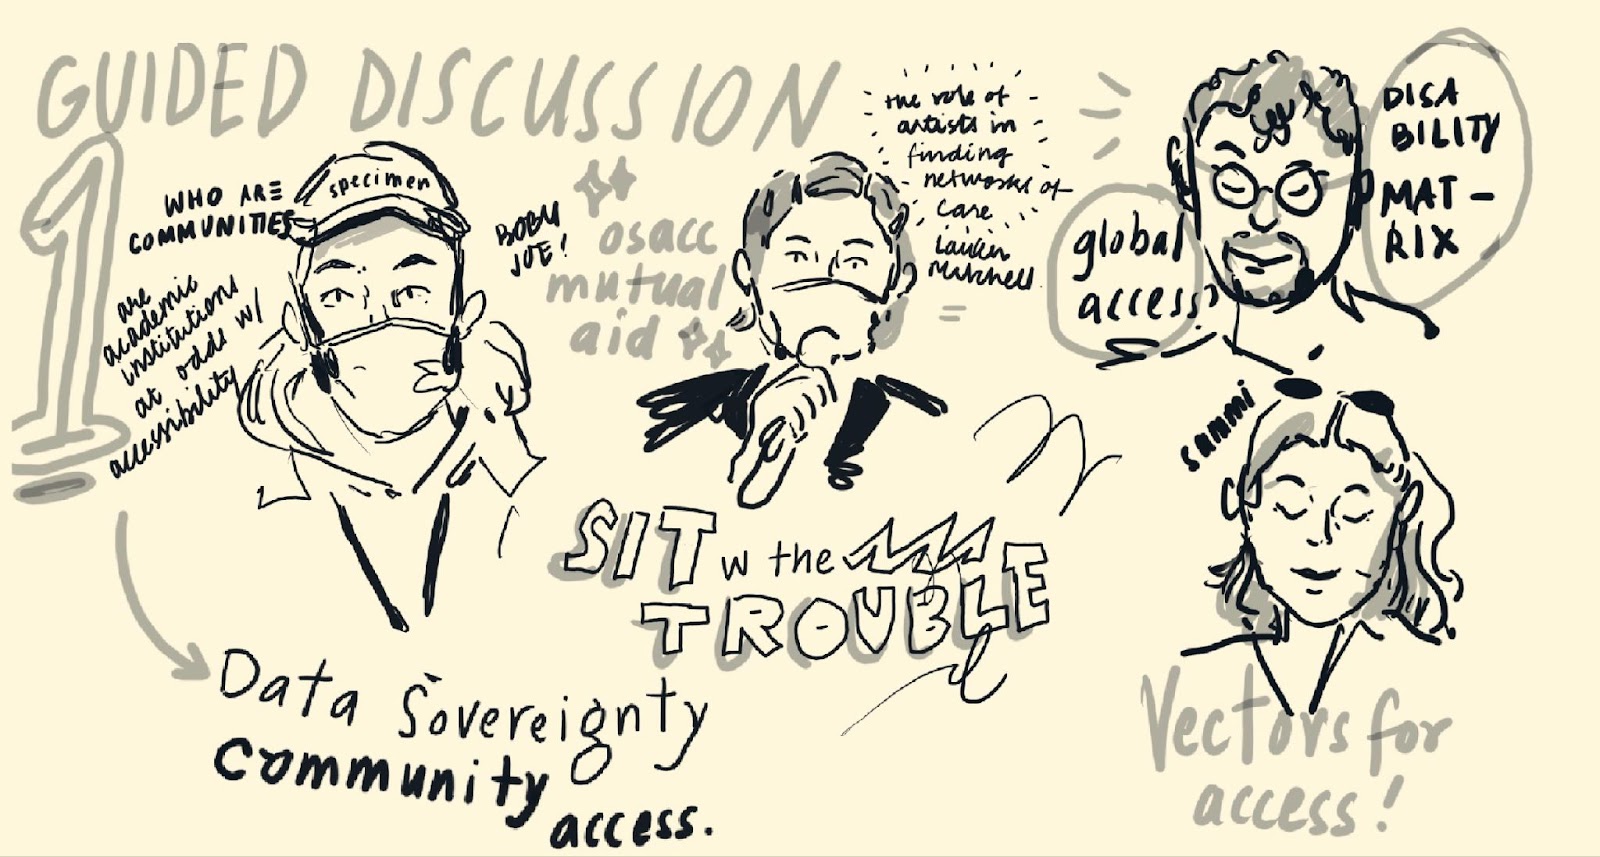 GUIDED DISCUSSION
1
WHO ARE
COMMUNITIES
are
academic
institutions
at odds w/
accessibility
specimen
BOBU
JOE!
osacc
mutual
aid
the role of
artists in
finding
networks of
care
Lauren
Mitchell
=
global
access?
DISA
BILITY
MAT-
RIX
Sammi
SIT w the
TROUBLE
Data Sovereignty
community
access.
Vectors for
access!